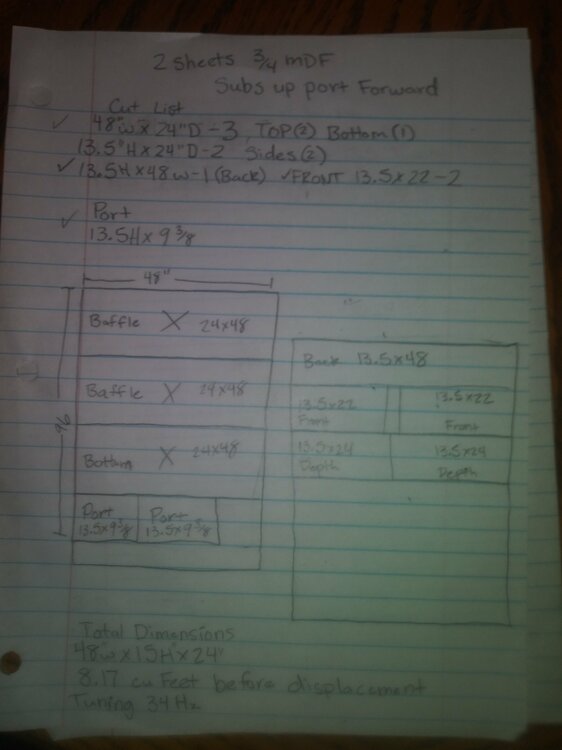 2 Sheets 3/4 MDF
Subs up port Forward
Cut List
✓ 48"W x 24"D - 3, TOP(2) Bottom(1)
13.5"H x 24"D - 2 Sides(2)
✓ 13.5H x 48w - 1 (Back) ✓ FRONT 13.5 x 22 - 2
✓ Port
13.5H x 9 3/8
48"
96
Baffle X 24x48
Baffle X 24x48
Bottom X 24x48
Port Port
13.5x9 3/8 13.5x9 3/8
Back 13.5x48
13.5x22 13.5x22
Front Front
13.5x24 13.5x24
Depth Depth
Total Dimensions
48w x 15H x 24"
8.17 cu Feet before displacement
Tuning 34Hz